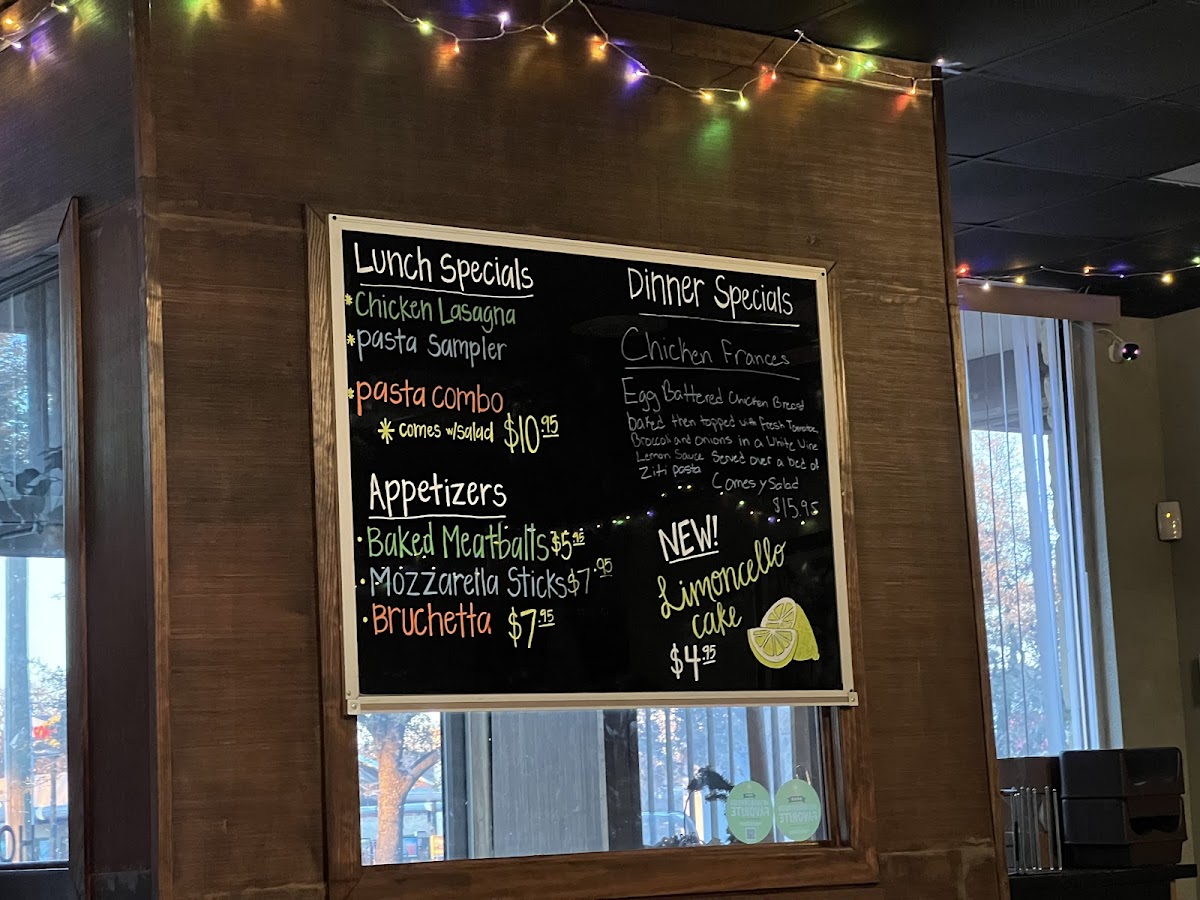 Lunch Specials
*Chicken Lasagna
*pasta Sampler
*pasta combo
* comes w/salad $10.95
Appetizers
·Baked Meatballs $5.95
·Mozzarella Sticks $7.95
·Bruchetta $7.95
Dinner Specials
Chicken Frances
Egg Battered Chicken Breast
baked then topped with Fresh Tomatoe,
Broccoli and onions in a White Wine
Lemon Sauce Served over a bed of
Ziti pasta
Comes y Salad
$15.95
NEW!
Limoncello
cake
$4.95
FAVORITE
FAVORITE